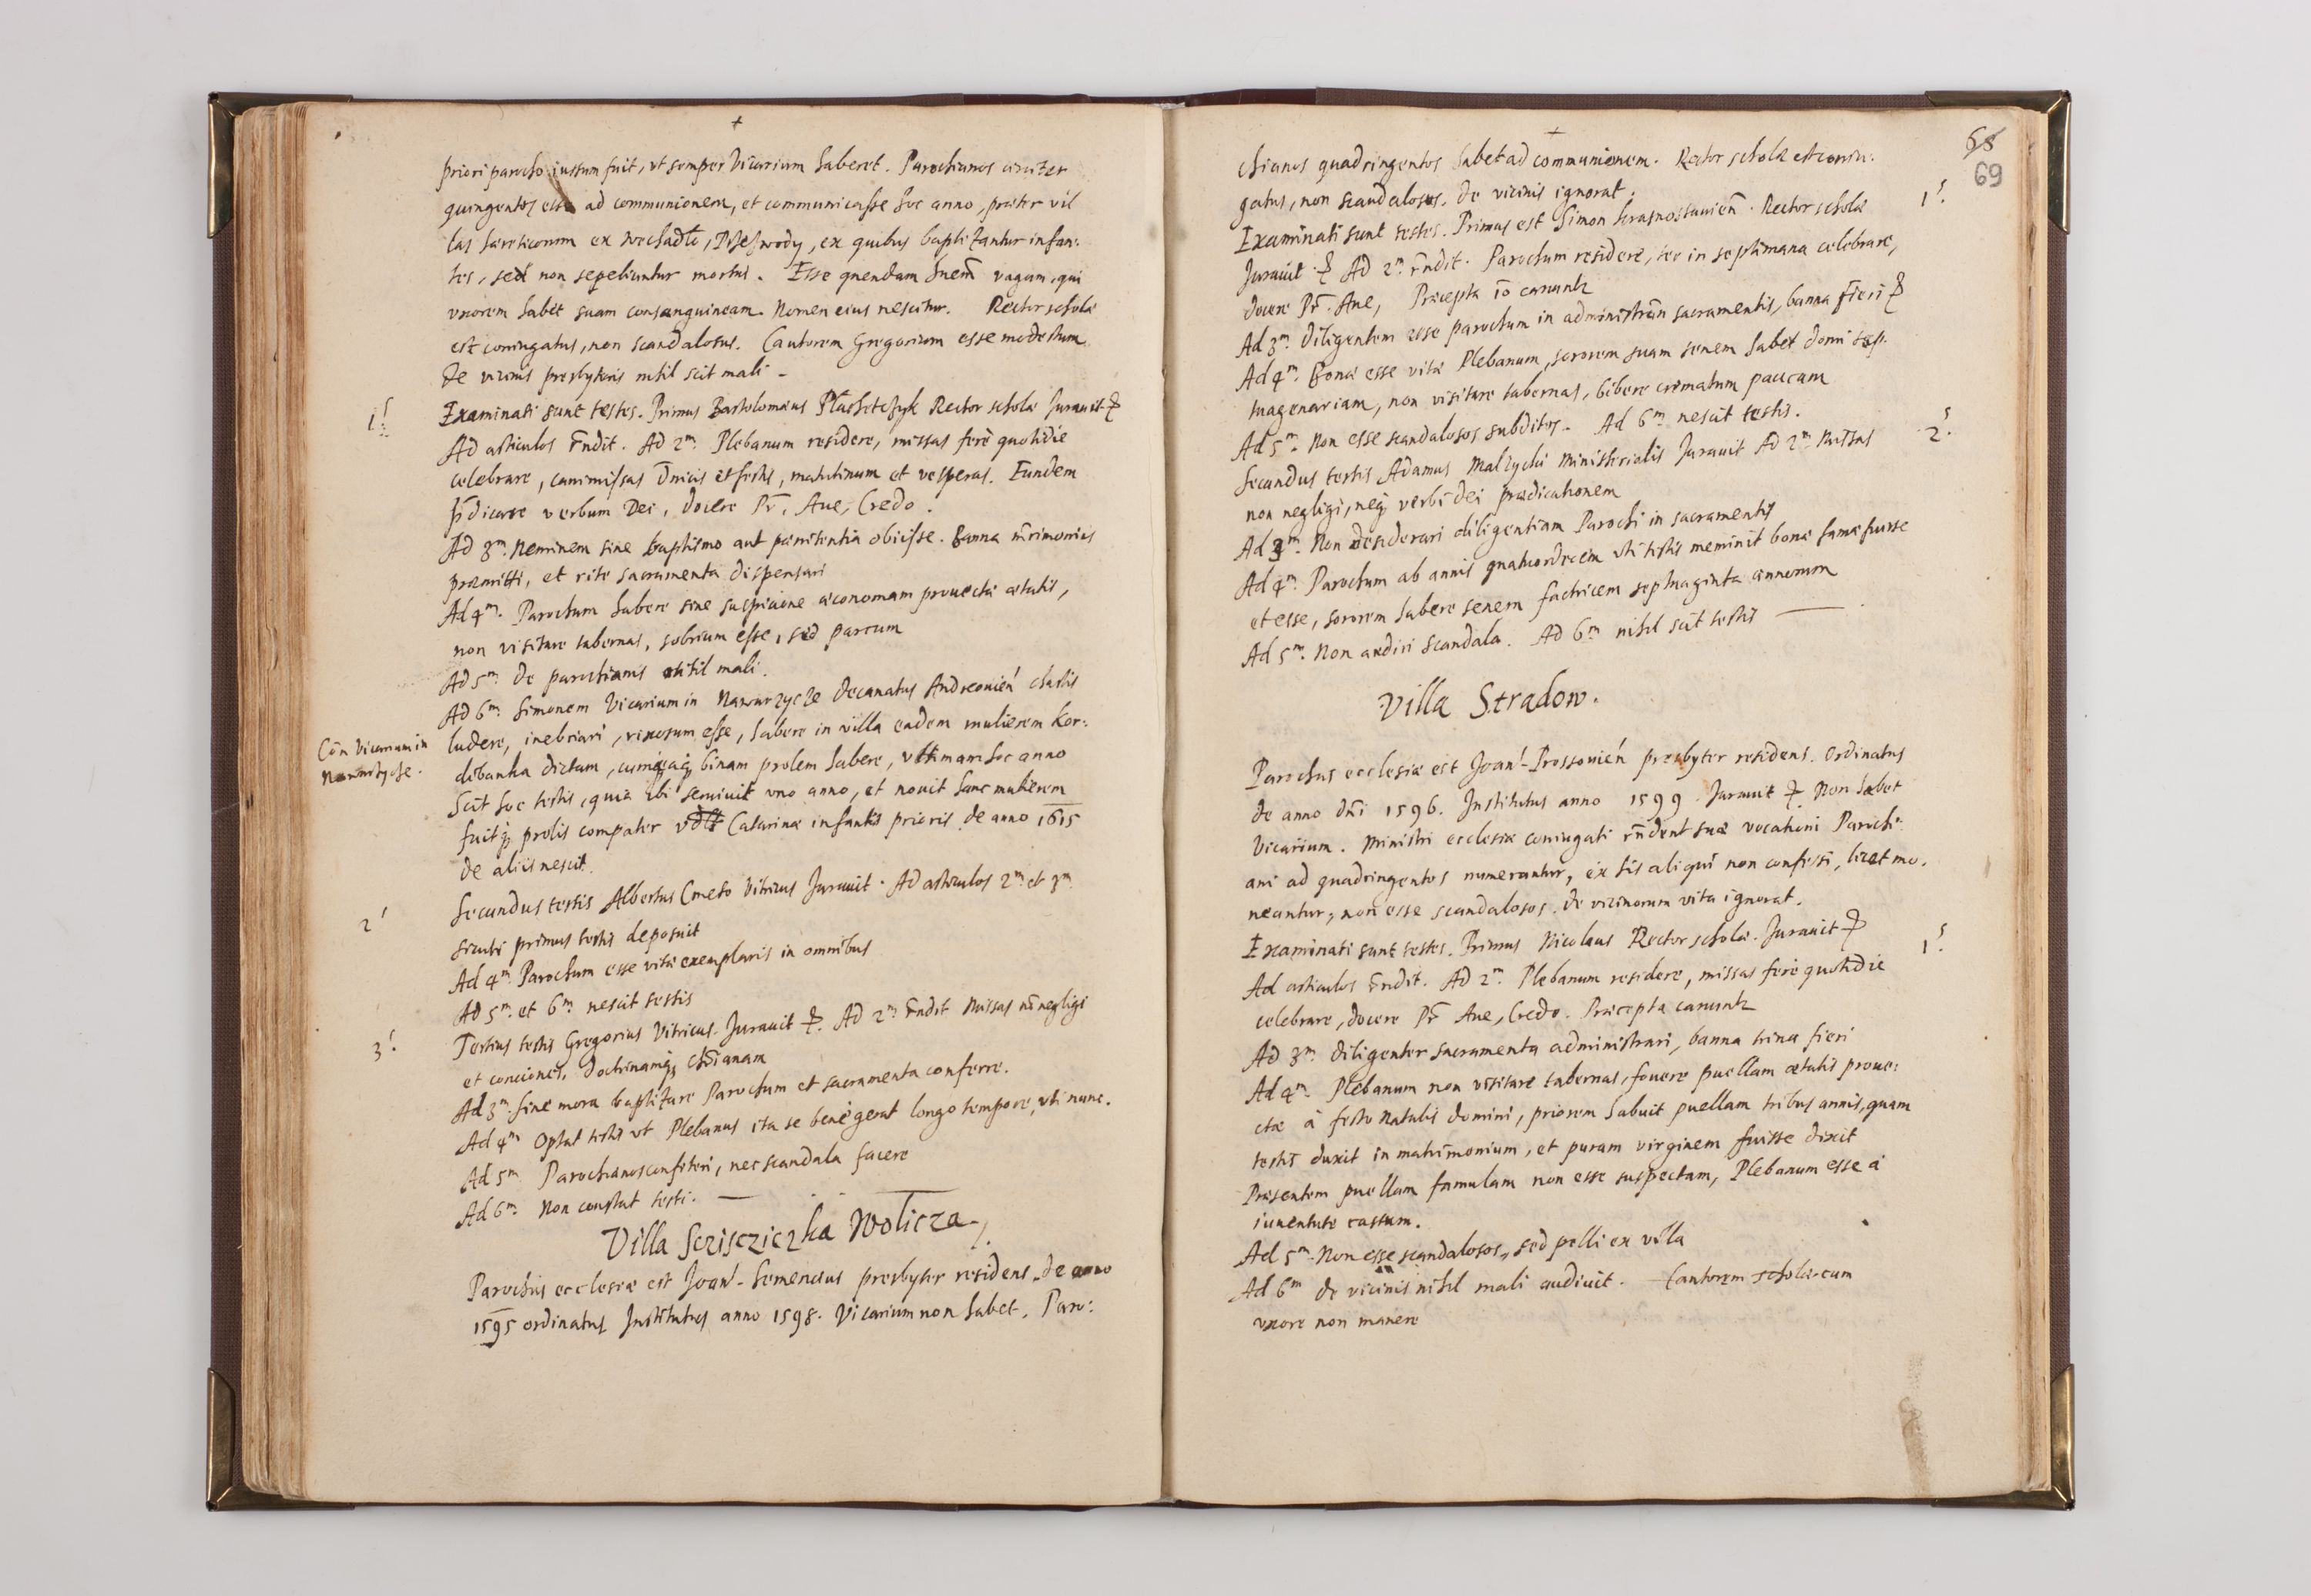 +
priori parocho iussum fuit, vt semper Vicarium haberet. Parochianos circiter
quingentos esse ad communionem, et communicasse hoc anno, præter vil
las hæreticorum ex, ex quibus baptizantur infan:
tes, sed non sepeliuntur mortui. Esse quendam vagum, qui
vxorem habet suam consanguineam. Nomen eius nescitur. Rector scholæ
est coniugatus, non scandalosus. Cantorem Gregorium esse modestum
De vicinis presbyteris nihil scit mali -
1.
Examinati sunt testes. Primus Bartolomæus Rector scholæ Jurauit
Ad articulos r̄ndit. Ad 2m. Plebanum residere, missas ferè quotidie
celebrare, D̄nicis et festis, matutinum et vesperas. Eundem
p̄dicare verbum Dei, docere Pr̄, Aue, Credo.
Ad 3m. Neminem sine baptismo aut pænitentia obiisse. Banna m̄rimonii
præmitti, et rite sacramenta dispensari
Ad 4m. Parochum habere sine suspicione œconomam prouectæ ætatis,
non visitare tabernas, sobrium esse, sed parcum
Ad 5m. De parochianis nihil mali.
Ad 6m. Simonem Vicarium in Nawarzycze Decanatus Andreouień chartis
Con̄ Vicarium in
Nawarzycze.
ludere, inebriari, rixosum esse, habere in villa eadem mulierem Kor:
dibanka dictam, binam prolem habere, vltimam hoc anno
Scit hoc testis, quia ibi seruiuit vno anno, et nouit hanc mulierem
fuitq3 prolis compater Catarinæ infantis prioris de anno 1615
de aliis nescit.
2
Secundus testis Albertus Cmeto Vitricus Jurauit. Ad articulos 2m et 3m
sicuti primus testis deposuit
Ad 4m Parochum esse vitæ exemplaris in omnibus
Ad 5m. et 6m. nescit testis
3.
Tertius testis Gregorius Vitricus. Jurauit. Ad 2m. r̄ndit Missas nō negligi
et conciones, doctrinamq3 chr̄ianam
Ad 3m. Sine mora baptizare Parochum et sacramenta conferre.
Ad 4m Optat testis vt Plebanus ita se benè gerat longo tempore, vti nunc.
Ad 5m Parochianos confiteri, nec scandala facere
Ad 6m. Non constat testi. —
Villa Scziscziczka Wolicza.
Parochus ecclesiæ est Joan. Semenius presbyter residens. de anno
1595 ordinatus Institutus anno 1598. Vicarium non habet. Paro:
+
68
69
chianos quadringentos habet ad communionem. Rector scholæ est coniu:
gatus, non scandalosus. De vicinis ignorat.
1.
Examinati sunt testes. Primus est Simon Krasnossauień. Rector scholæ
Jurauit. Ad 2m. r̄ndit. Parochum residere, ter in septimana celebrare,
docere Pr̄. Aue, Præcepta canunt
Ad 3m. Diligentem esse parochum in sacramentis, banna fieri
Ad 4m. Bonæ esse vitæ Plebanum, sororem suam senem habet domi sep.
tuagenariam, non visitare tabernas, bibere crematum paucum
Ad 5m. Non esse scandalosos subditos. Ad 6m. nescit testis.
2.
Secundus testis Adamus Malzycki Ministerialis Jurauit Ad 2m. Missas
non negligi, neq3 verbi dei prædicationem
Ad 3m. Non desiderari diligentiam Parochi in sacramentis
Ad 4m. Parochum ab annis quatuordecim vti testis meminit bonæ famæ fuisse
et esse, sororem habere senem factricem septuaginta annorum
Ad 5m. Non audiri scandala. Ad 6m nihil scit testis —
Villa Stradow.
Parochus ecclesiæ est Joan. Prossouień presbyter residens. Ordinatus
de anno dn̄i 1596. Institutus anno 1599. Jurauit. Non habet
Vicarium. Ministri ecclesiæ coniugati r̄ndent suæ vocationi Parochi
ani ad quadringentos numerantur, ex his aliqui non confessi, licet mo.
neantur, non esse scandalosos. De vicinorum vita ignorat.
1.
Examinati sunt testes. Primus Nicolaus Rector scholæ. Jurauit
Ad articulos r̄ndit. Ad 2m. Plebanum residere, missas ferè quotidie
celebrare, docere Pr̄ Aue, Credo. Præcepta canunt
Ad 3m. diligenter sacramenta administrari, banna trina fieri
Ad 4m. Plebanum non visitare tabernas, fouere puellam ætatis proue:
ctæ à festo Natalis Domini, priorem habuit puellam tribus annis, quam
testis duxit in matrimonium, et puram virginem fuisse dixit
Præsentem puellam famulam non esse suspectam, Plebanum esse à
iuuentute castum.
Ad 5m. Non esse scandalosos, sed pelli ex villa
Ad 6m de vicinis nihil mali audiuit. Cantorem scholæ cum
vxore non manere